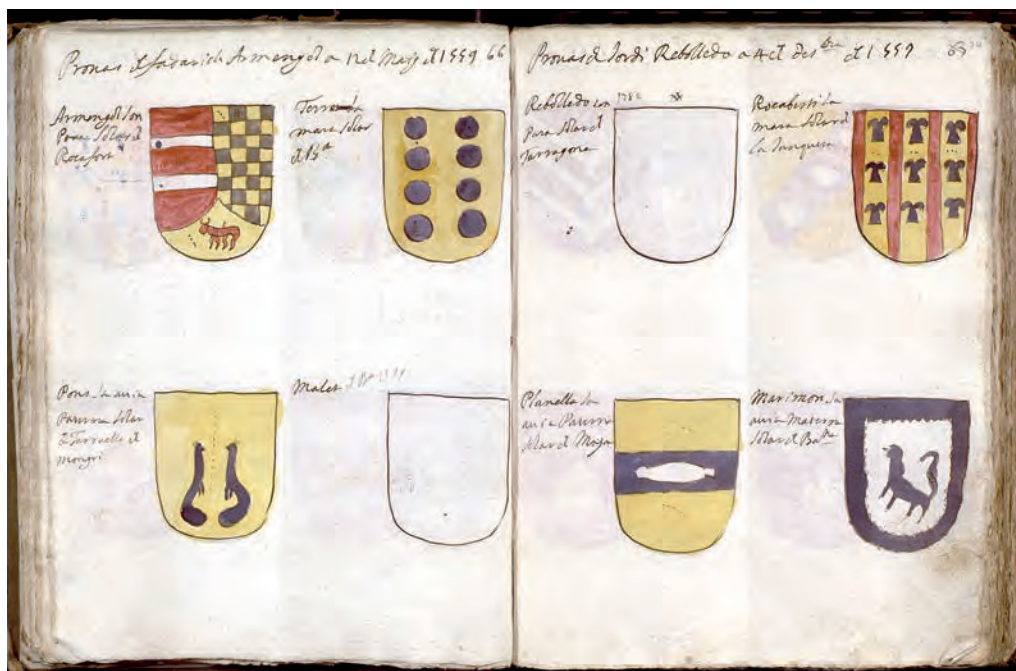 Prouas de fadarich Armengol a 12 el Maij del 1559 66
Armengol son
Para Solar d
Rocafort
Terre la
mara Solar
d Bª
Pons la auia
Paterna Solar
d Torroella d
mongri
Malet
Prouas d Jordi Rebolledo a 4 el des.bre el 1559
Rebolledo son
Para Solar d
Tarragona
Rocaberti la
mara Solar d
la Junquera
Planella la
auia Paterna
Solar d Moya
Marimon la
auia Materna
Solar d Bª